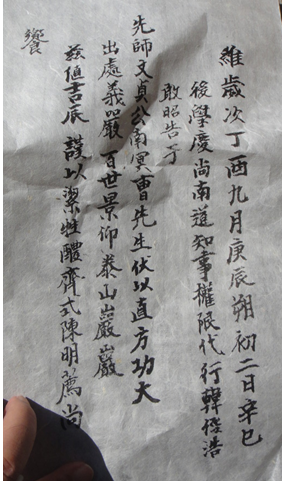 維歲次丁酉九月庚辰朔初二日辛巳
後學慶尚南道知事權限代行韓俊浩
敢昭告于
先師文貞公南冥曺先生伏以直方功大
出處義嚴百世景仰泰山巖巖
玆值吉辰謹以潔牲醴齊式陳明薦尙
饗